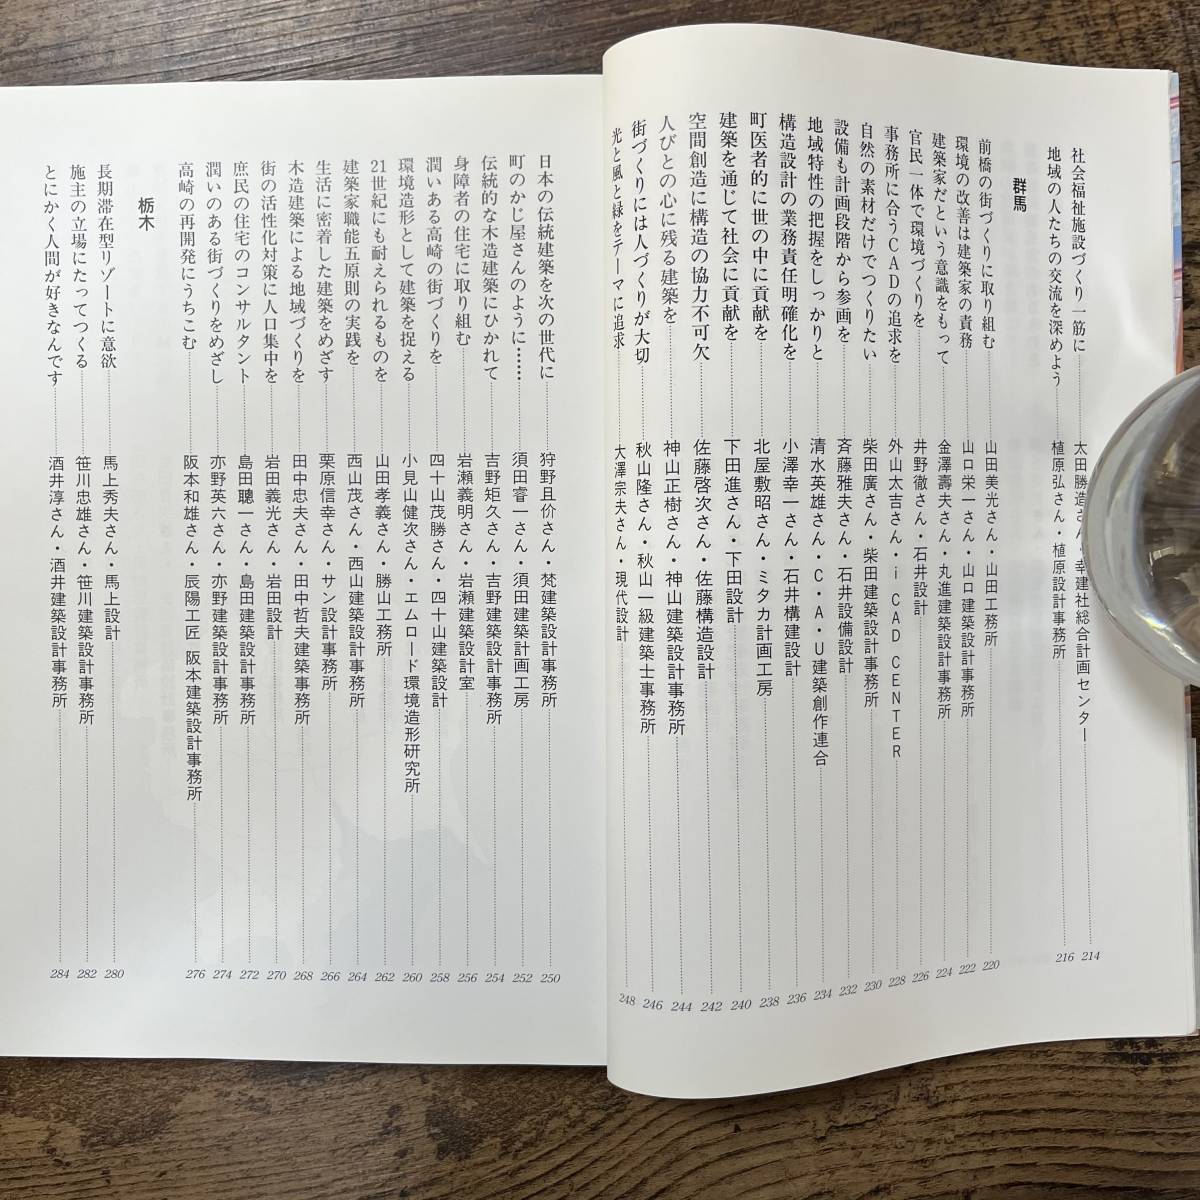 社会福祉施設づくり一筋に 太田勝造さん・幸建社総合計画センター 214
地域の人たちの交流を深めよう 植原弘さん・植原設計事務所 216
群馬
前橋の街づくりに取り組む 山田美光さん・山田工務所 220
環境の改善は建築家の責務 山口栄一さん・山口建築設計事務所 222
建築家だという意識をもって 金澤壽夫さん・丸進建築設計事務所 224
官民一体で環境づくりを 井野徹さん・石井設計 226
事務所に合うCADの追求を 外山太吉さん・i CAD CENTER 228
自然の素材だけでつくりたい 柴田廣さん・柴田建築設計事務所 230
設備も計画段階から参画を 斉藤雅夫さん・石井設備設計 232
地域特性の把握をしっかりと 清水英雄さん・C・A・U建築創作連合 234
構造設計の業務責任明確化を 小澤幸一さん・石井構建設計 236
町医者的に世の中に貢献を 北屋敷昭さん・ミタカ計画工房 238
建築を通じて社会に貢献を 下田進さん・下田設計 240
空間創造に構造の協力不可欠 佐藤啓次さん・佐藤構造設計 242
人びとの心に残る建築を 神山正樹さん・神山建築設計事務所 244
街づくりには人づくりが大切 秋山隆さん・秋山一級建築士事務所 246
光と風と緑をテーマに追求 大澤宗夫さん・現代設計 248
日本の伝統建築を次の世代に 狩野且价さん・梵建築設計事務所 250
町のかじ屋さんのように…… 須田睿一さん・須田建築計画工房 252
伝統的な木造建築にひかれて 吉野矩久さん・吉野建築設計事務所 254
身障者の住宅に取り組む 岩瀬義明さん・岩瀬建築設計室 256
潤いある高崎の街づくりを 四十山茂勝さん・四十山建築設計 258
環境造形として建築を捉える 小見山健次さん・エムロード環境造形研究所 260
21世紀にも耐えられるものを 山田孝義さん・勝山工務所 262
建築家職能五原則の実践を 西山茂さん・西山建築設計事務所 264
生活に密着した建築をめざす 栗原信幸さん・サン設計事務所 266
木造建築による地域づくりを 田中忠夫さん・田中哲夫建築事務所 268
街の活性化対策に人口集中を 岩田義光さん・岩田設計 270
庶民の住宅のコンサルタント 島田聰一さん・島田建築設計事務所 272
潤いのある街づくりをめざし 亦野英六さん・亦野建築設計事務所 274
高崎の再開発にうちこむ 阪本和雄さん・辰陽工匠 阪本建築設計事務所 276
栃木
長期滞在型リゾートに意欲 馬上秀夫さん・馬上設計 280
施主の立場にたってつくる 笹川忠雄さん・笹川建築設計事務所 282
とにかく人間が好きなんです 酒井淳さん・酒井建築設計事務所 284